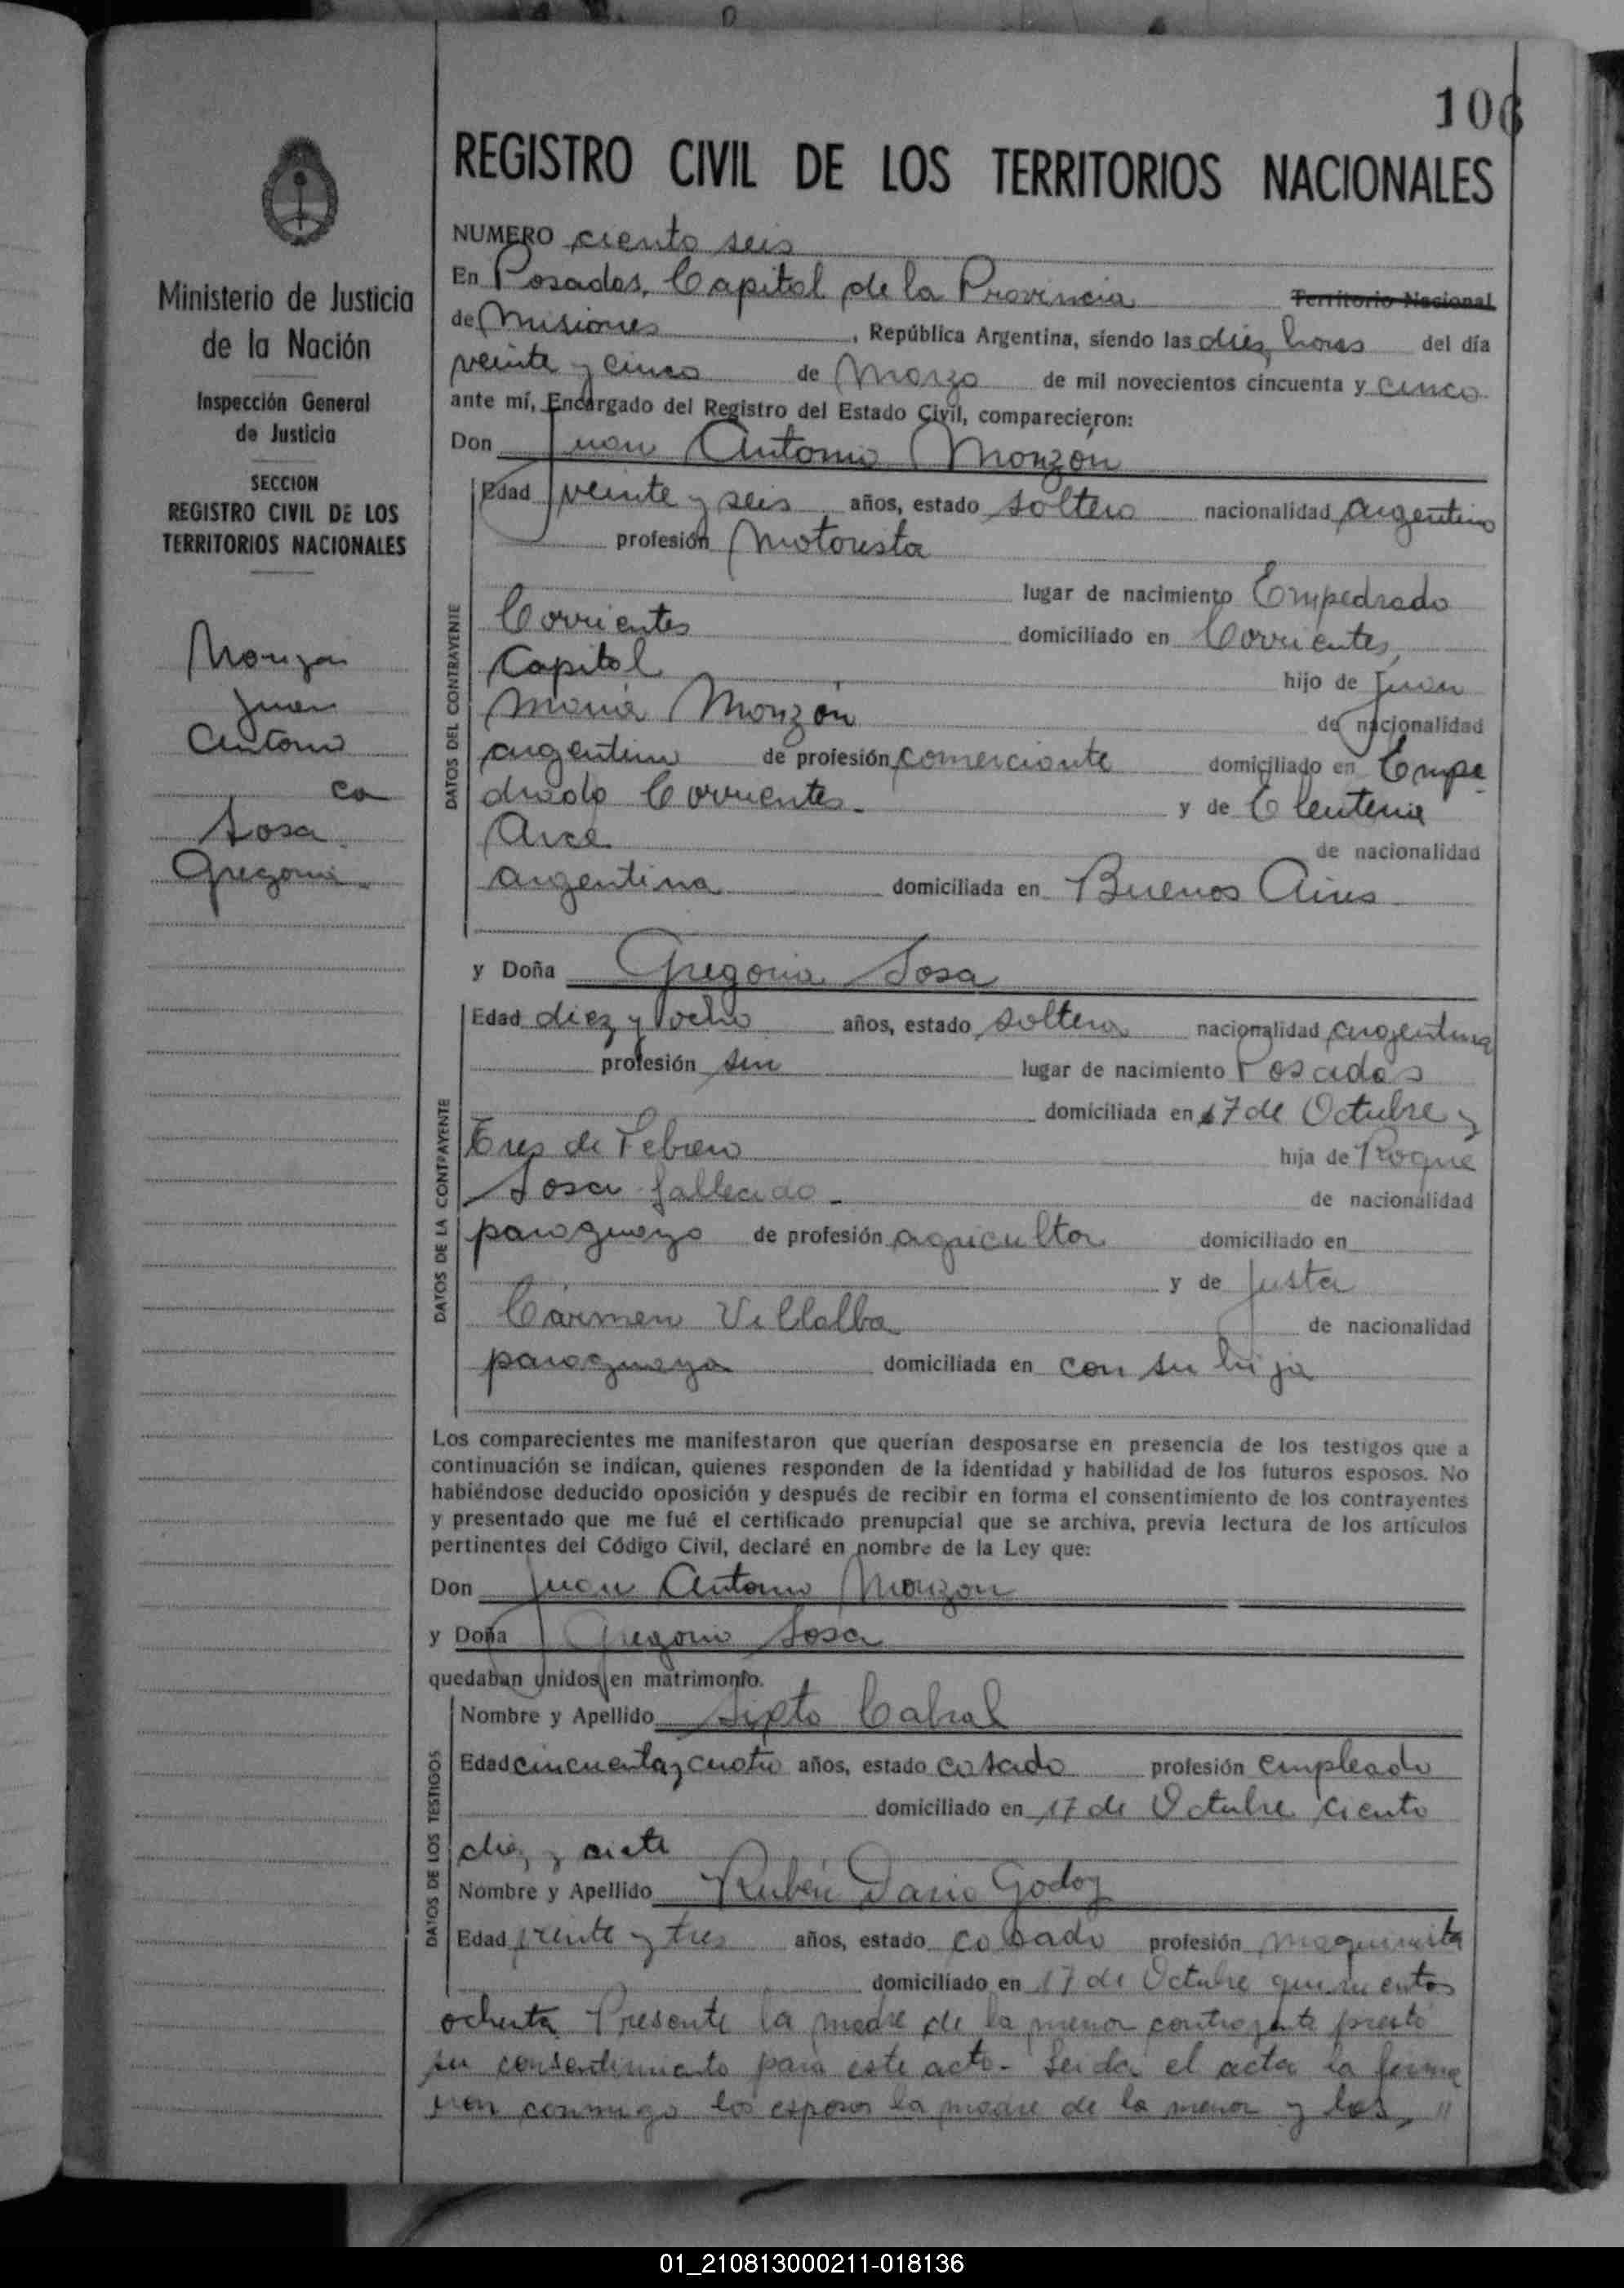 106
REGISTRO CIVIL DE LOS TERRITORIOS NACIONALES
Ministerio de Justicia
de la Nación
Inspección General
de Justicia
SECCION
REGISTRO CIVIL DE LOS
TERRITORIOS NACIONALES
Monzon
Juan
Antonio
con
Sosa
Gregoria
NUMERO ciento seis
En Posadas, Capital de la Provincia Territorio Nacional
de Misiones, República Argentina, siendo las diez horas del día
veinte y cinco de Marzo de mil novecientos cincuenta y cinco
ante mí, Encargado del Registro del Estado Civil, comparecieron:
Don Juan Antonio Monzón
DATOS DEL CONTRAYENTE
Edad veinte y seis años, estado soltero nacionalidad argentino
profesión Motorista
lugar de nacimiento Empedrado
Corrientes domiciliado en Corrientes,
Capital hijo de Juan
Maria Monzón de nacionalidad
argentino de profesión comerciante domiciliado en Empe
drado Corrientes. y de Eleuteria
Arce de nacionalidad
argentina domiciliada en Buenos Aires
y Doña Gregoria Sosa
DATOS DE LA CONTRAYENTE
Edad diez y ocho años, estado soltera nacionalidad argentina
profesión sin lugar de nacimiento Posadas
domiciliada en 17 de Octubre y
Tres de Febrero hija de Roque
Sosa fallecido - de nacionalidad
paraguayo de profesión agricultor domiciliado en
y de Justa
Cármen Villalba de nacionalidad
paraguaya domiciliada en con su hija
Los comparecientes me manifestaron que querían desposarse en presencia de los testigos que a
continuación se indican, quienes responden de la identidad y habilidad de los futuros esposos. No
habiéndose deducido oposición y después de recibir en forma el consentimiento de los contrayentes
y presentado que me fué el certificado prenupcial que se archiva, previa lectura de los artículos
pertinentes del Código Civil, declaré en nombre de la Ley que:
Don Juan Antonio Monzon
y Doña Gregoria Sosa
quedaban unidos en matrimonio.
DATOS DE LOS TESTIGOS
Nombre y Apellido Sixto Cabral
Edad cincuenta y cuatro años, estado casado profesión empleado
domiciliado en 17 de Octubre ciento
diez y siete
Nombre y Apellido Rubén Dario Godoy
Edad treinta y tres años, estado casado profesión maquinista
domiciliado en 17 de Octubre quinientos
ochenta. Presente la madre de la menor contrayente prestó
su consentimiento para este acto.- Leida el acta la firma
ron conmigo los esposos la madre de la menor y los, "
01_210813000211-018136